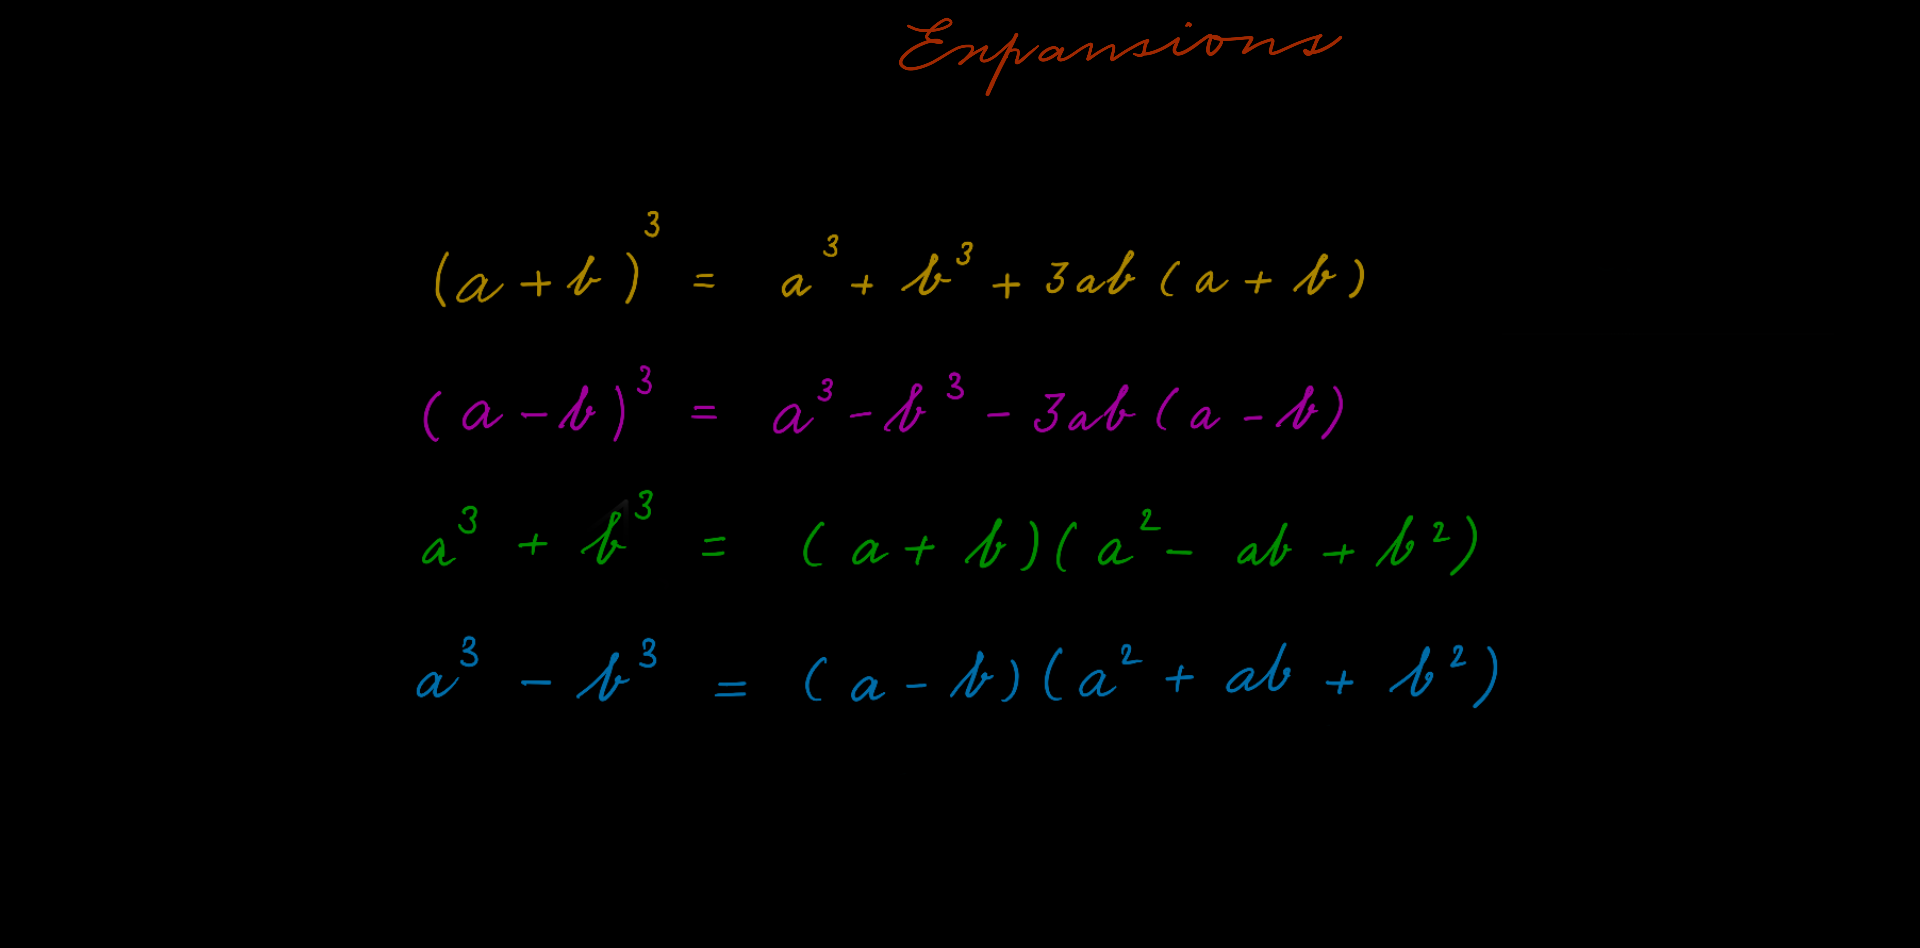 Expansions
(a + b)³ = a³ + b³ + 3ab (a + b)
(a - b)³ = a³ - b³ - 3ab (a - b)
a³ + b³ = (a + b)(a² - ab + b²)
a³ - b³ = (a - b)(a² + ab + b²)